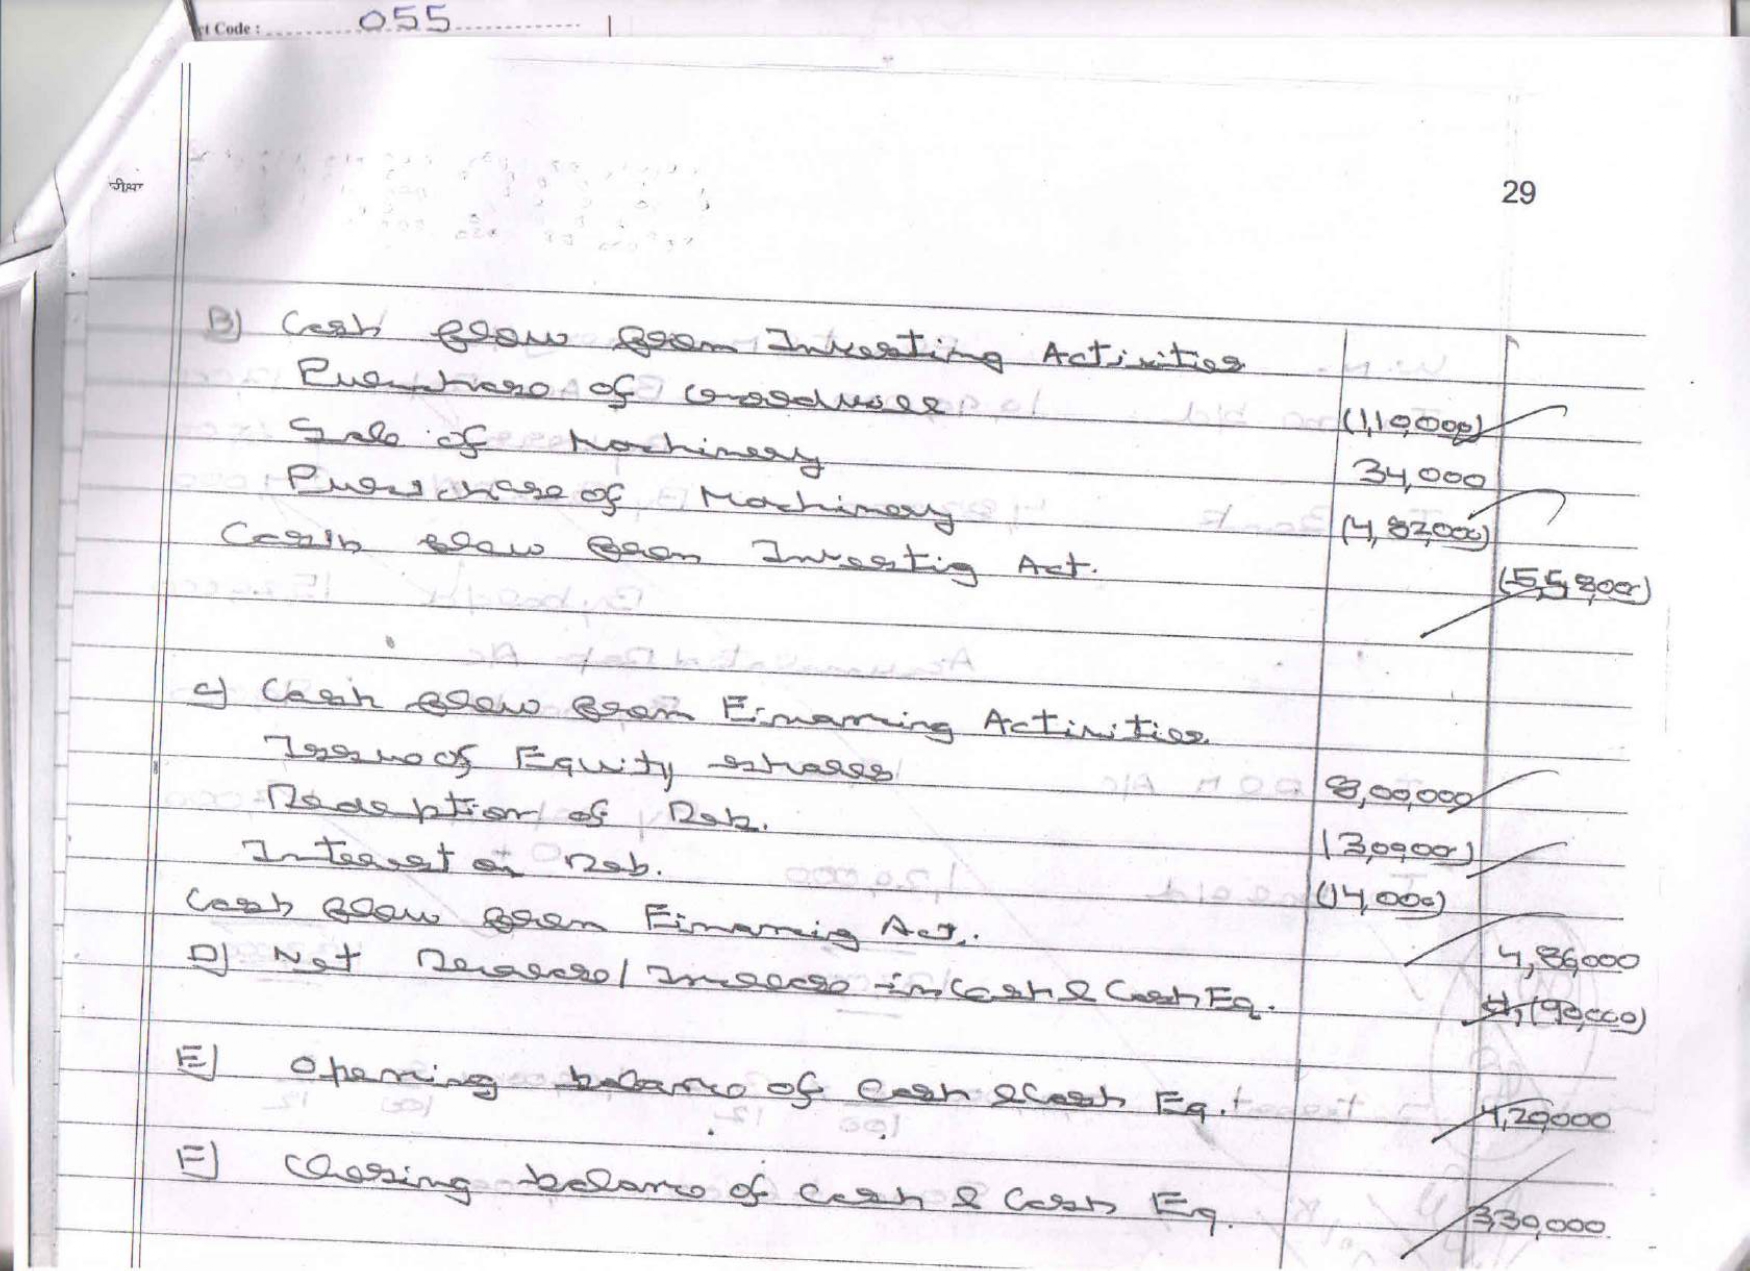 ct Code : 055
रीक्षा
29
B) Cash flow from Investing Activities
Purchase of Goodwill (1,10,000)
Sale of Machinery 34,000
Purchase of Machinery (4,82,000)
Cash flow from Investig Act. (5,58,000)
C) Cash flow from Financing Activities
Issue of Equity shares 8,00,000
Redeption of Deb. (3,00,000)
Interest on Deb. (14,000)
Cash flow from Financig Act. 4,86,000
D) Net Decrease/Increase in Cash & Cash Eq. (90,000)
E) Opening balance of Cash & Cash Eq. 4,20,000
F) Closing balance of Cash & Cash Eq. 3,30,000